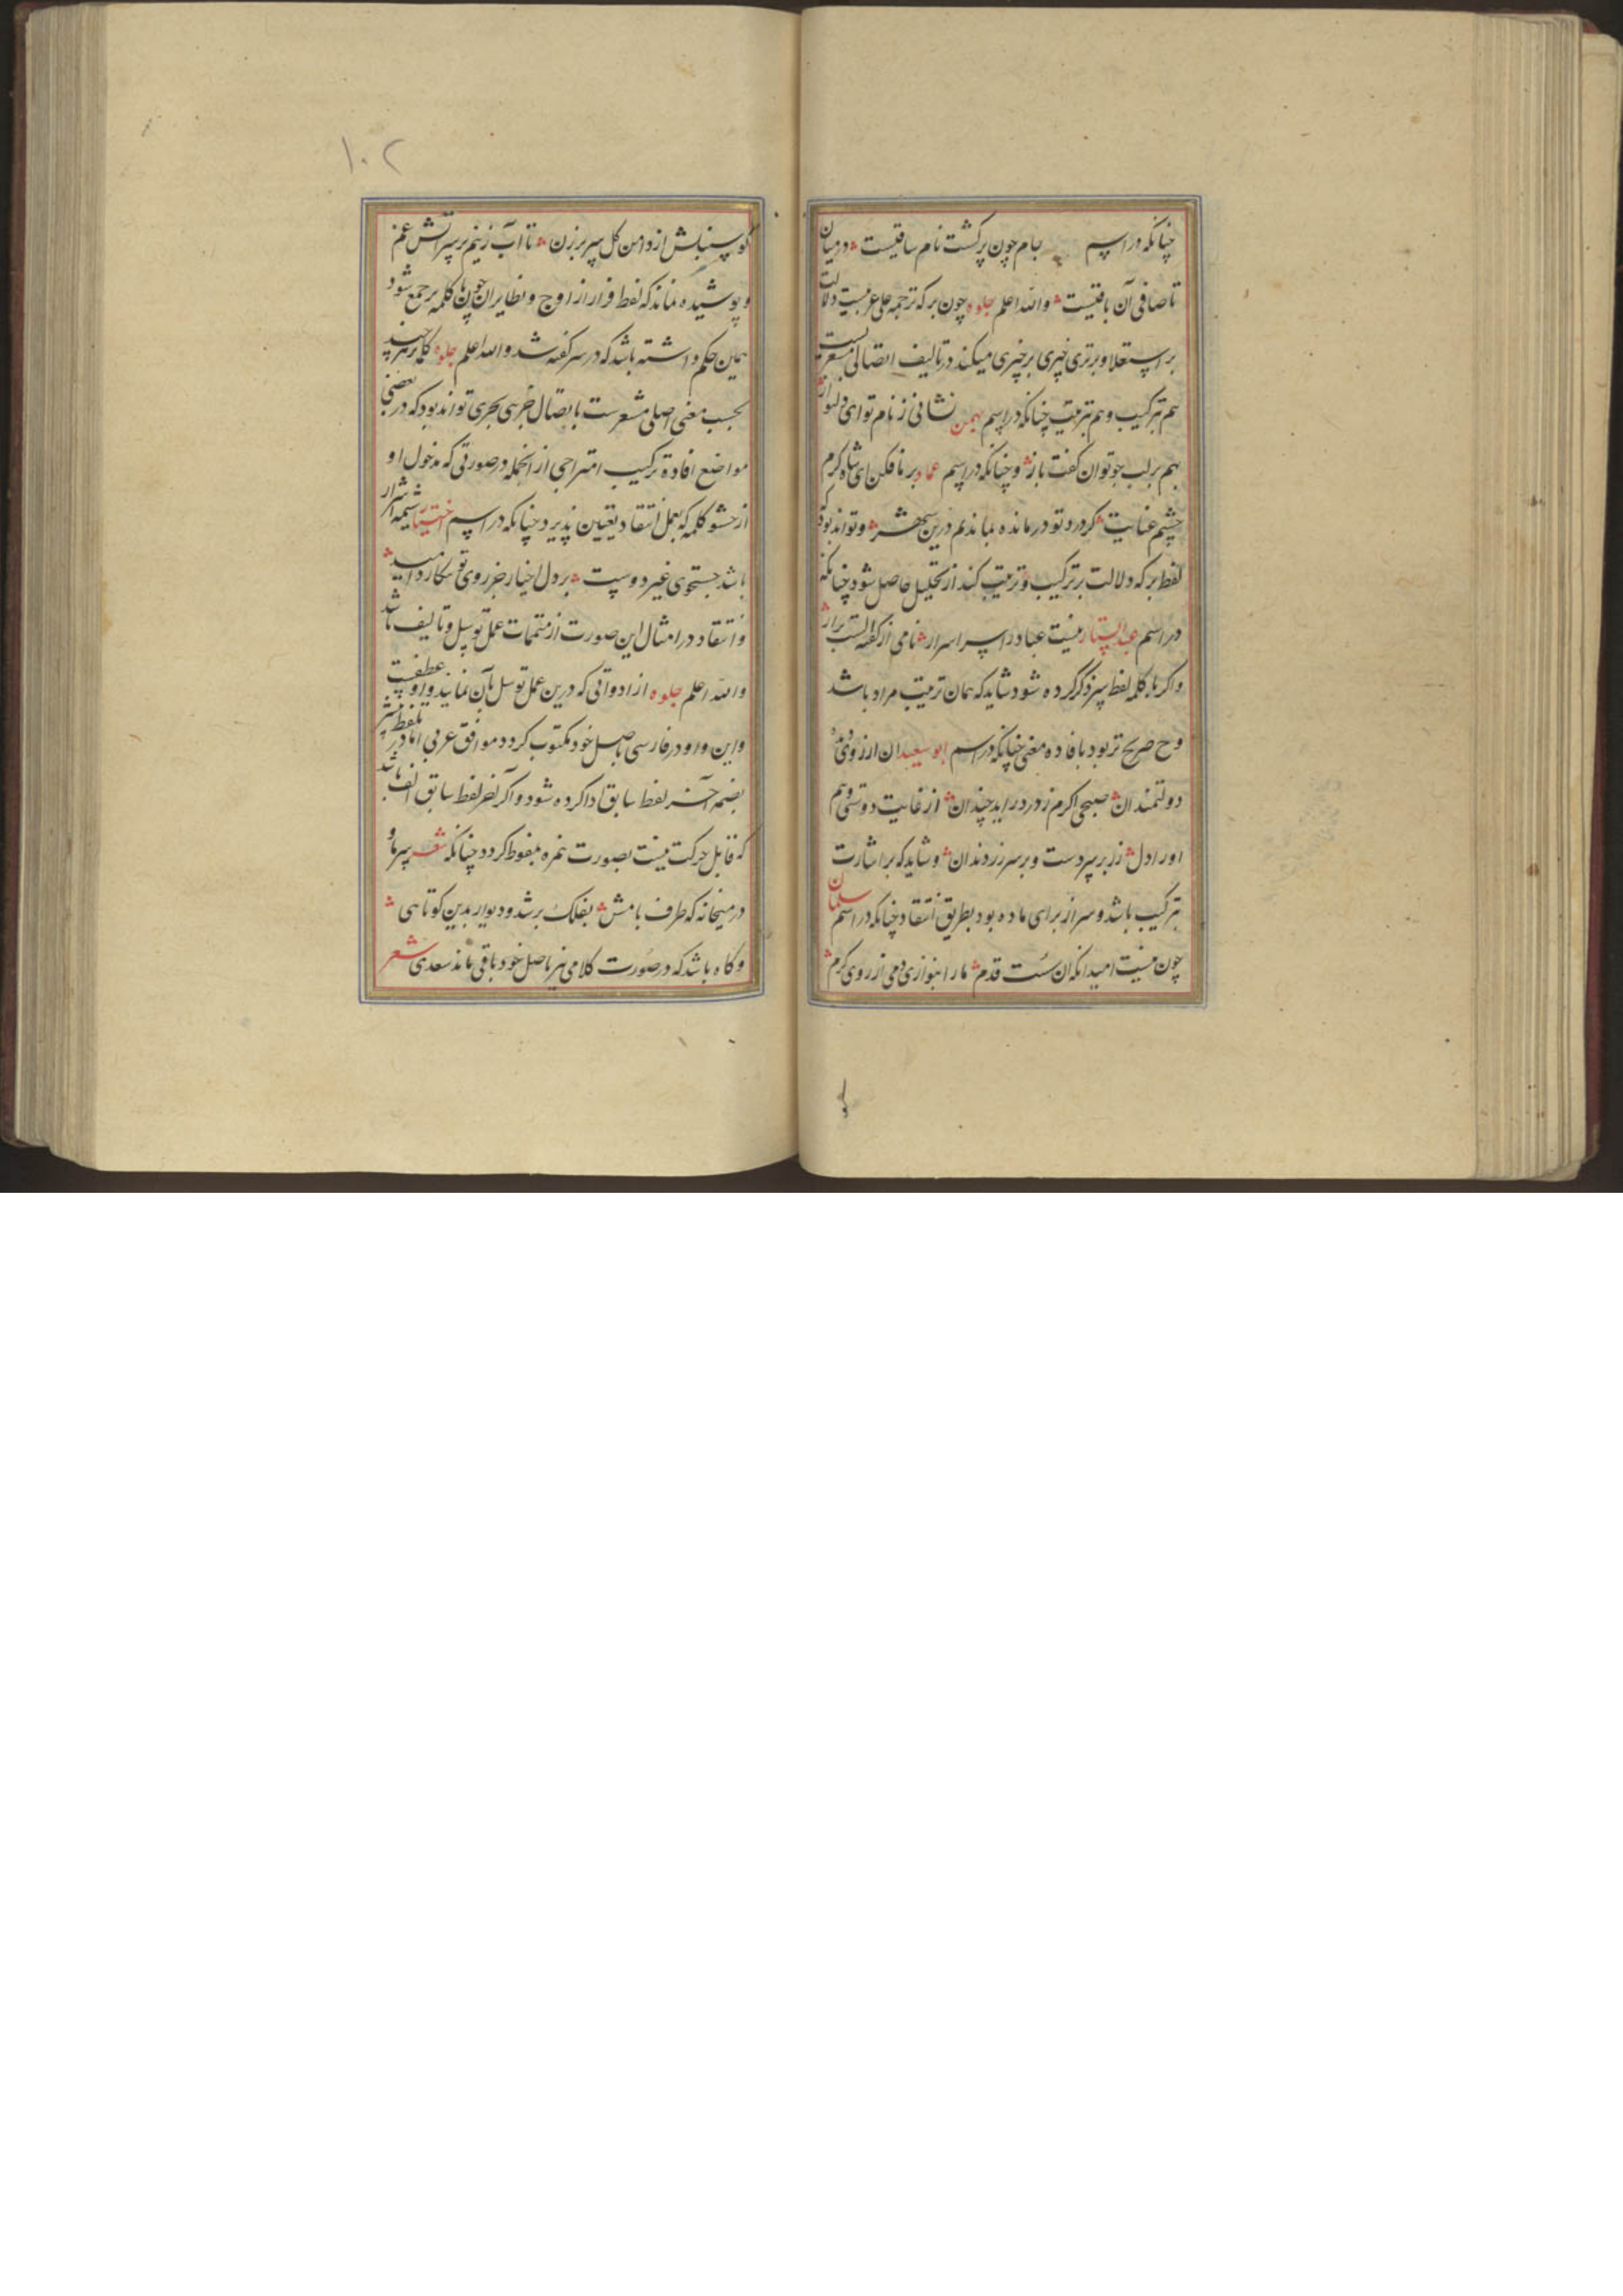 چنانکه در اسم جام چون پر کشت نام ساقیست در میان
تا صافی آن باقیست والله اعلم جلوه چون بر که ترجمه علی عربیست دلالت
بر استعلا و برتری چیزی بر چیزی میکند در تالیف اتصالی مشعر است
هم بترکیب و هم بترتیب چنانکه در اسم بهمن نشانی ز نام تو ای دلنواز
بهم بر لب جو توان کفت باز و چنانکه در اسم عماد بر ما فکن ای شاه کرم
چشم عنایت کز درد تو در مانده بماندیم درین شهر و تواند بود که
لفظ بر که دلالت بر ترکیب و ترتیب کند از تحلیل حاصل شود چنانکه
در اسم عبدالستار نیست عبا در اسرار نامی از کفته
واکر با کلمه لفظ سر ذکر کرده شود شاید که همان ترتیب مراد باشد
وح صریح تر بود بافاده معنی چنانکه در اسم ابو سعید ان ارزوی
دولتمندان صبحی اکرم ز در دراید چندان از غایت دوستی و هم
اور ادل زر بر سر دست و بر سر زر دندان و شاید که بر اشارت
بترکیب باشد و سر از برای ماده بود بطریق انتقاد چنانکه در اسم سلمان
چون نیست امید انکه ان سست قدم ما را بنوازی دمی از روی کرم
کو سنبلش از دامن کل سر بر زن تا اب زنیم بر سر اتش غم
و پوشیده نماند که لفظ فراز از اوج و نظایر ان چون با کلمه بر جمع شود
همین حکم داشته باشد که در سر کفته شد والله اعلم جلوه کلمه بر هر چند
بحسب معنی اصلی مشعر ست باتصال جزی بجزی تواند بود که در بعضی
مواضع افاده ترکیب امتزاجی از انجمله در صورتی که مدخول او
از حشو کلمه که بعمل انتقاد تعیین پذیرد چنانکه در اسم اختیار
باشد جستجوی غیر دوست بر دل اخیار جز روی تو
و انتقاد در امثال این صورت از متممات عمل توسل و تالیف باشد
والله اعلم جلوه از ادواتی که درین عمل توسل بآن نمایند واو عطفست
و این واو در فارسی باصل خود مکتوب کردد موافق عربی اما در تلفظ
بضمه آخر لفظ سابق ادا کرده شود و اکر آخر لفظ سابق الف باشد
که قابل حرکت نیست بصورت همزه ملفوظ کردد چنانکه شعر
در میخانه که طرف بامش بفلک بر شد و دیوار بدین کوتاهی
و کاه باشد که در صورت کلامی نیز باصل خود باقی ماند سعدی شعر
۱۰۲